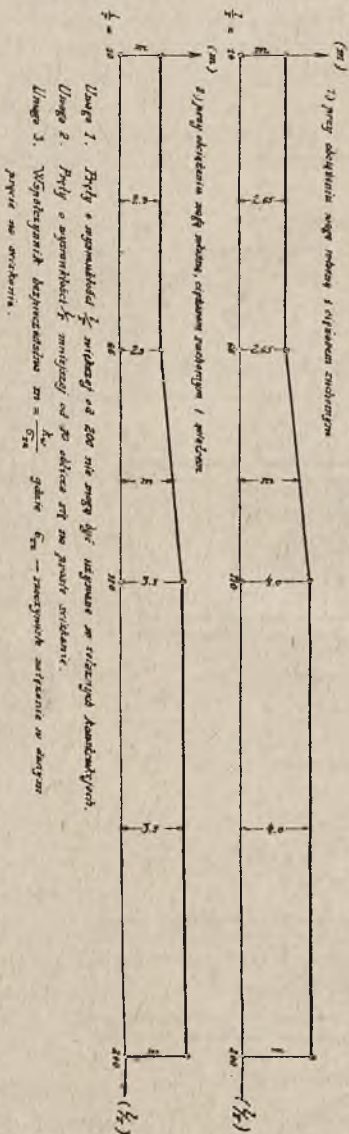 1) przy obciążeniu wagą własną i ciężarem ruchomym
(m)
m 2.65 2.65 m 4.0 4.0 m
l/r = 10 60 110 200 (l/r)
2) przy obciążeniu wagą własną, ciężarem ruchomym i wiatrem
(m)
m 2.3 2.3 m 3.5 3.5 m
l/r = 10 60 110 200 (l/r)
Uwaga 1. Pręty o wysmukłości l/r większej od 200 nie mogą być używane w ściskanych konstrukcjach.
Uwaga 2. Pręty o wysmukłości l/r mniejszej od oblicza się na proste ściskanie.
Uwaga 3. Współczynnik bezpieczeństwa m = gdzie — rzeczywiste natężenie w danym
pręcie na ściskanie.